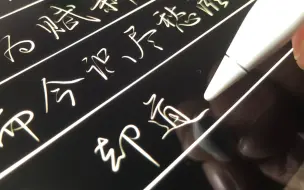 为赋新
而今识尽愁
却道